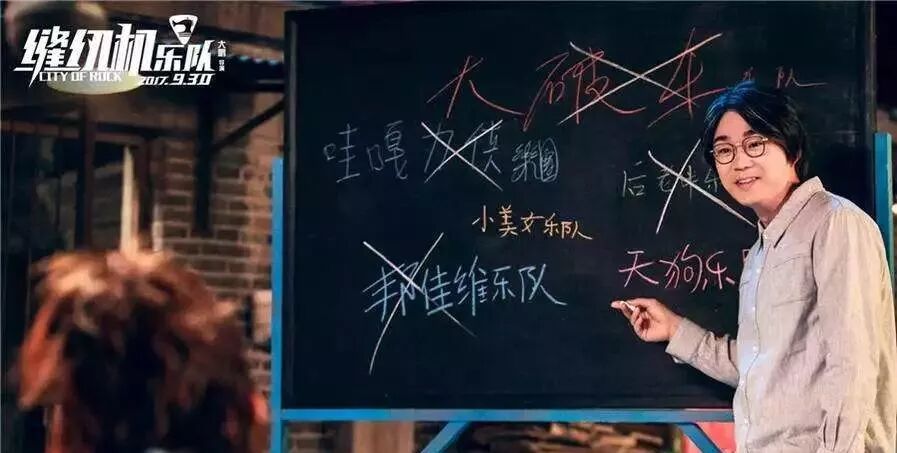 缝纫机乐队
大鹏 导演
CITY OF ROCK
2017.9.30
大破车乐队
哇嘎力侠乐团
后老牛乐
小美女乐队
邦佳维乐队
天狗乐队